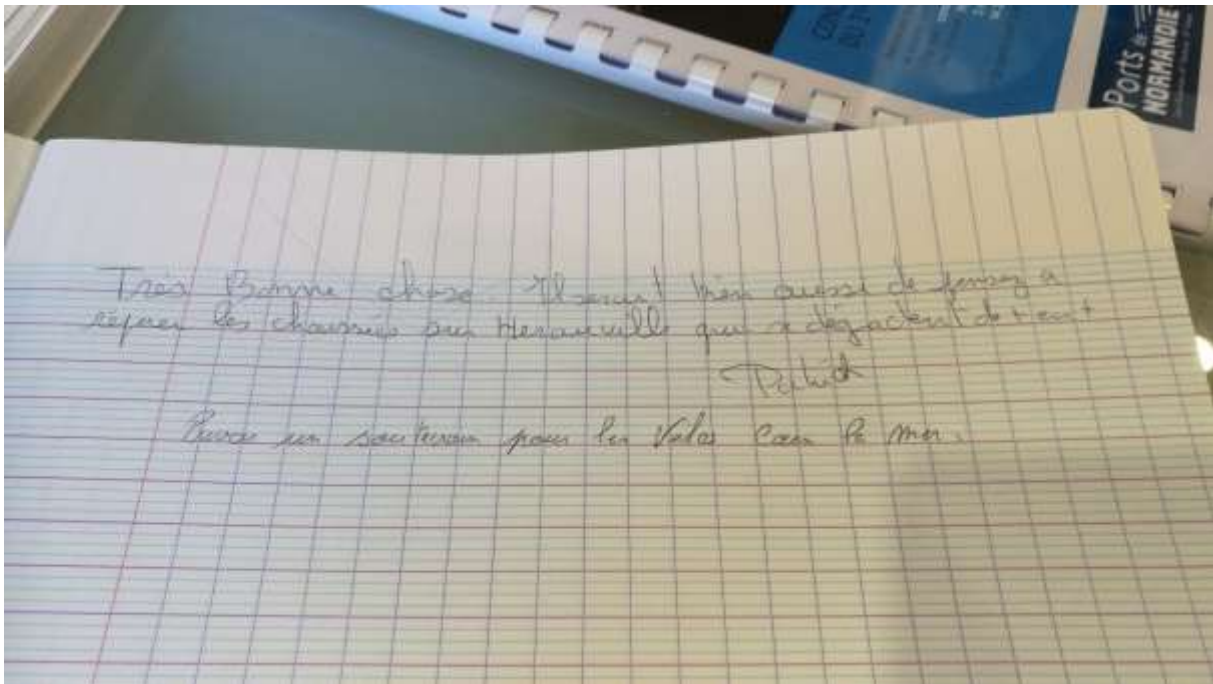 Ports de
NORMANDIE
Très Bonne chose. Il serait bien aussi de pensez a
les chaussées sur Herouville qui se dégradent de tout
Patrick
un souterrain pour les Velos Caen la mer.